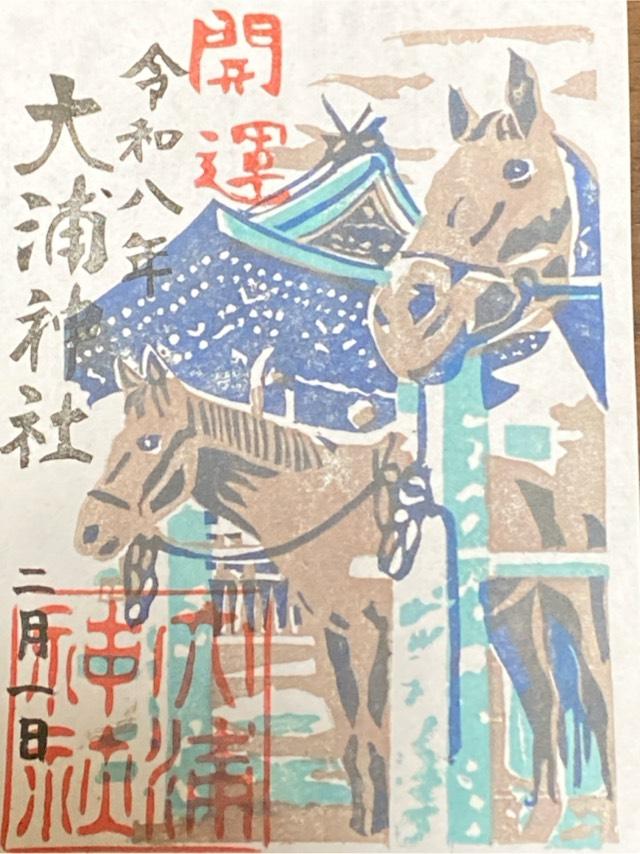 開運
令和八年
大浦神社
二月一日
大浦
神社